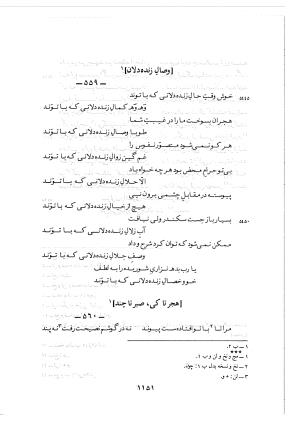 [وصالِ زنده‌دلان]۱
ــ ۵۵۹ ــ
خوش وقتِ حالِ زنده‌دلانی که با تو‌ند
وَه وَه کمال زنده‌دلانی که با توَند
هجران بسوخت ما را در غیبتِ شما
طوبا وصالِ زنده‌دلانی که با توَند
هر کو نمی‌شود متصوّر نفوس را
غم‌گین زوالِ زنده‌دلانی که با توَند
بی‌تو حرامِ محض بود هرچه خواه باد
الّا حلالِ زنده‌دلانی که با توَند
پیوسته در مقابلِ چشمی برون نه‌یی
هیچ از خیالِ زنده‌دلانی که با توَند
۵۱۵۰
بسیار باز جست سکندر ولی نیافت
آبِ زلالِ زنده‌دلانی که با توَند
ممکن نمی‌شود که توان کرد شرح و داد
وصفِ جلالِ زنده‌دلانی که با توَند
یا رب بده نزاریِ شوریده را به لطف
خو و خصالِ زنده‌دلانی که با توَند
[هجر تا کی، صبر تا چند]۱
ــ ۵۶۰ ــ
مرا تا۲ با تو افتاده‌ست پیوند
نه در گوشم نصیحت رفت۳ نه پند
۱ ــ ب ۲.
***
۱ ــ مج و نخ و ان و ب ۱.
۱۱۵۱